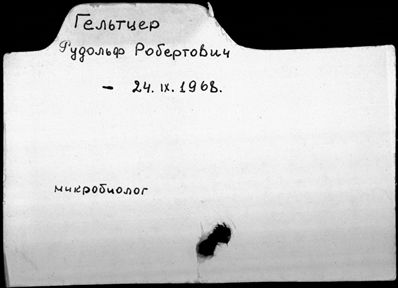 Гельтцер
Рудольф Робертович
– 24.IX.1968.
микробиолог